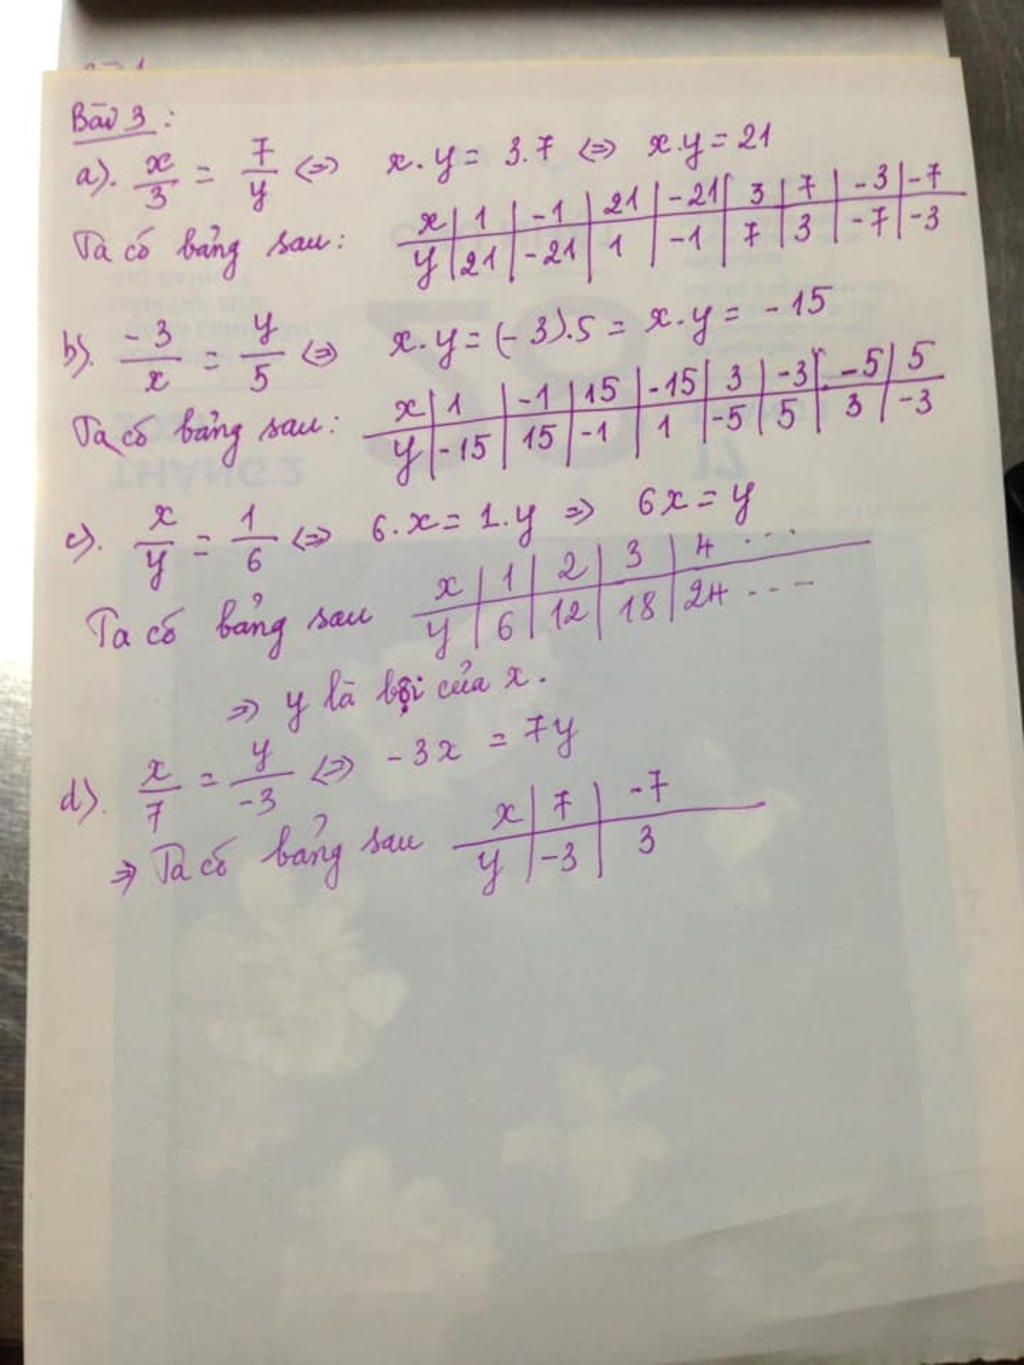 Bài 3:
a). x/3 = 7/y <=> x.y = 3.7 <=> x.y = 21
Ta có bảng sau:
x | 1 | -1 | 21 | -21 | 3 | 7 | -3 | -7
y | 21 | -21 | 1 | -1 | 7 | 3 | -7 | -3
b). -3/x = y/5 <=> x.y = (-3).5 = x.y = -15
Ta có bảng sau:
x | 1 | -1 | 15 | -15 | 3 | -3 | -5 | 5
y | -15 | 15 | -1 | 1 | -5 | 5 | 3 | -3
c). x/y = 1/6 <=> 6.x = 1.y => 6x = y
Ta có bảng sau
x | 1 | 2 | 3 | 4 ...
y | 6 | 12 | 18 | 24 ....
=> y là bội của x.
d). x/7 = y/-3 <=> -3x = 7y
=> Ta có bảng sau
x | 7 | -7
y | -3 | 3